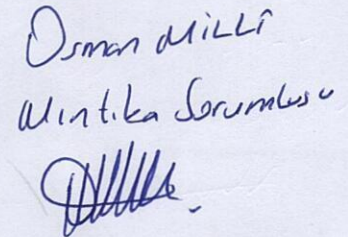 Osman Milli
Mıntıka Sorumlusu